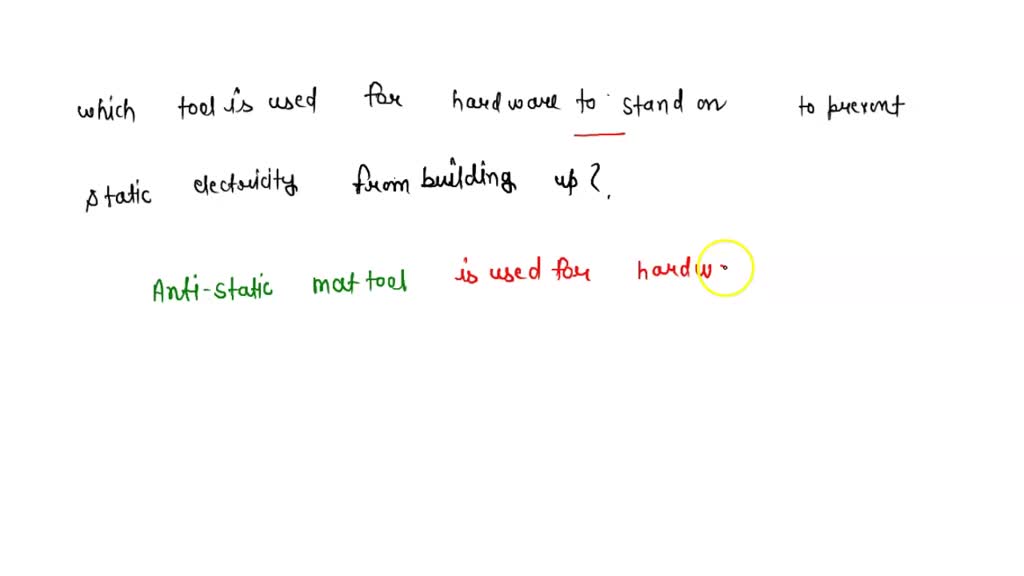 which tool is used for hardware to stand on to prevent
static electricity from building up?
Anti-static mat tool is used for hardw